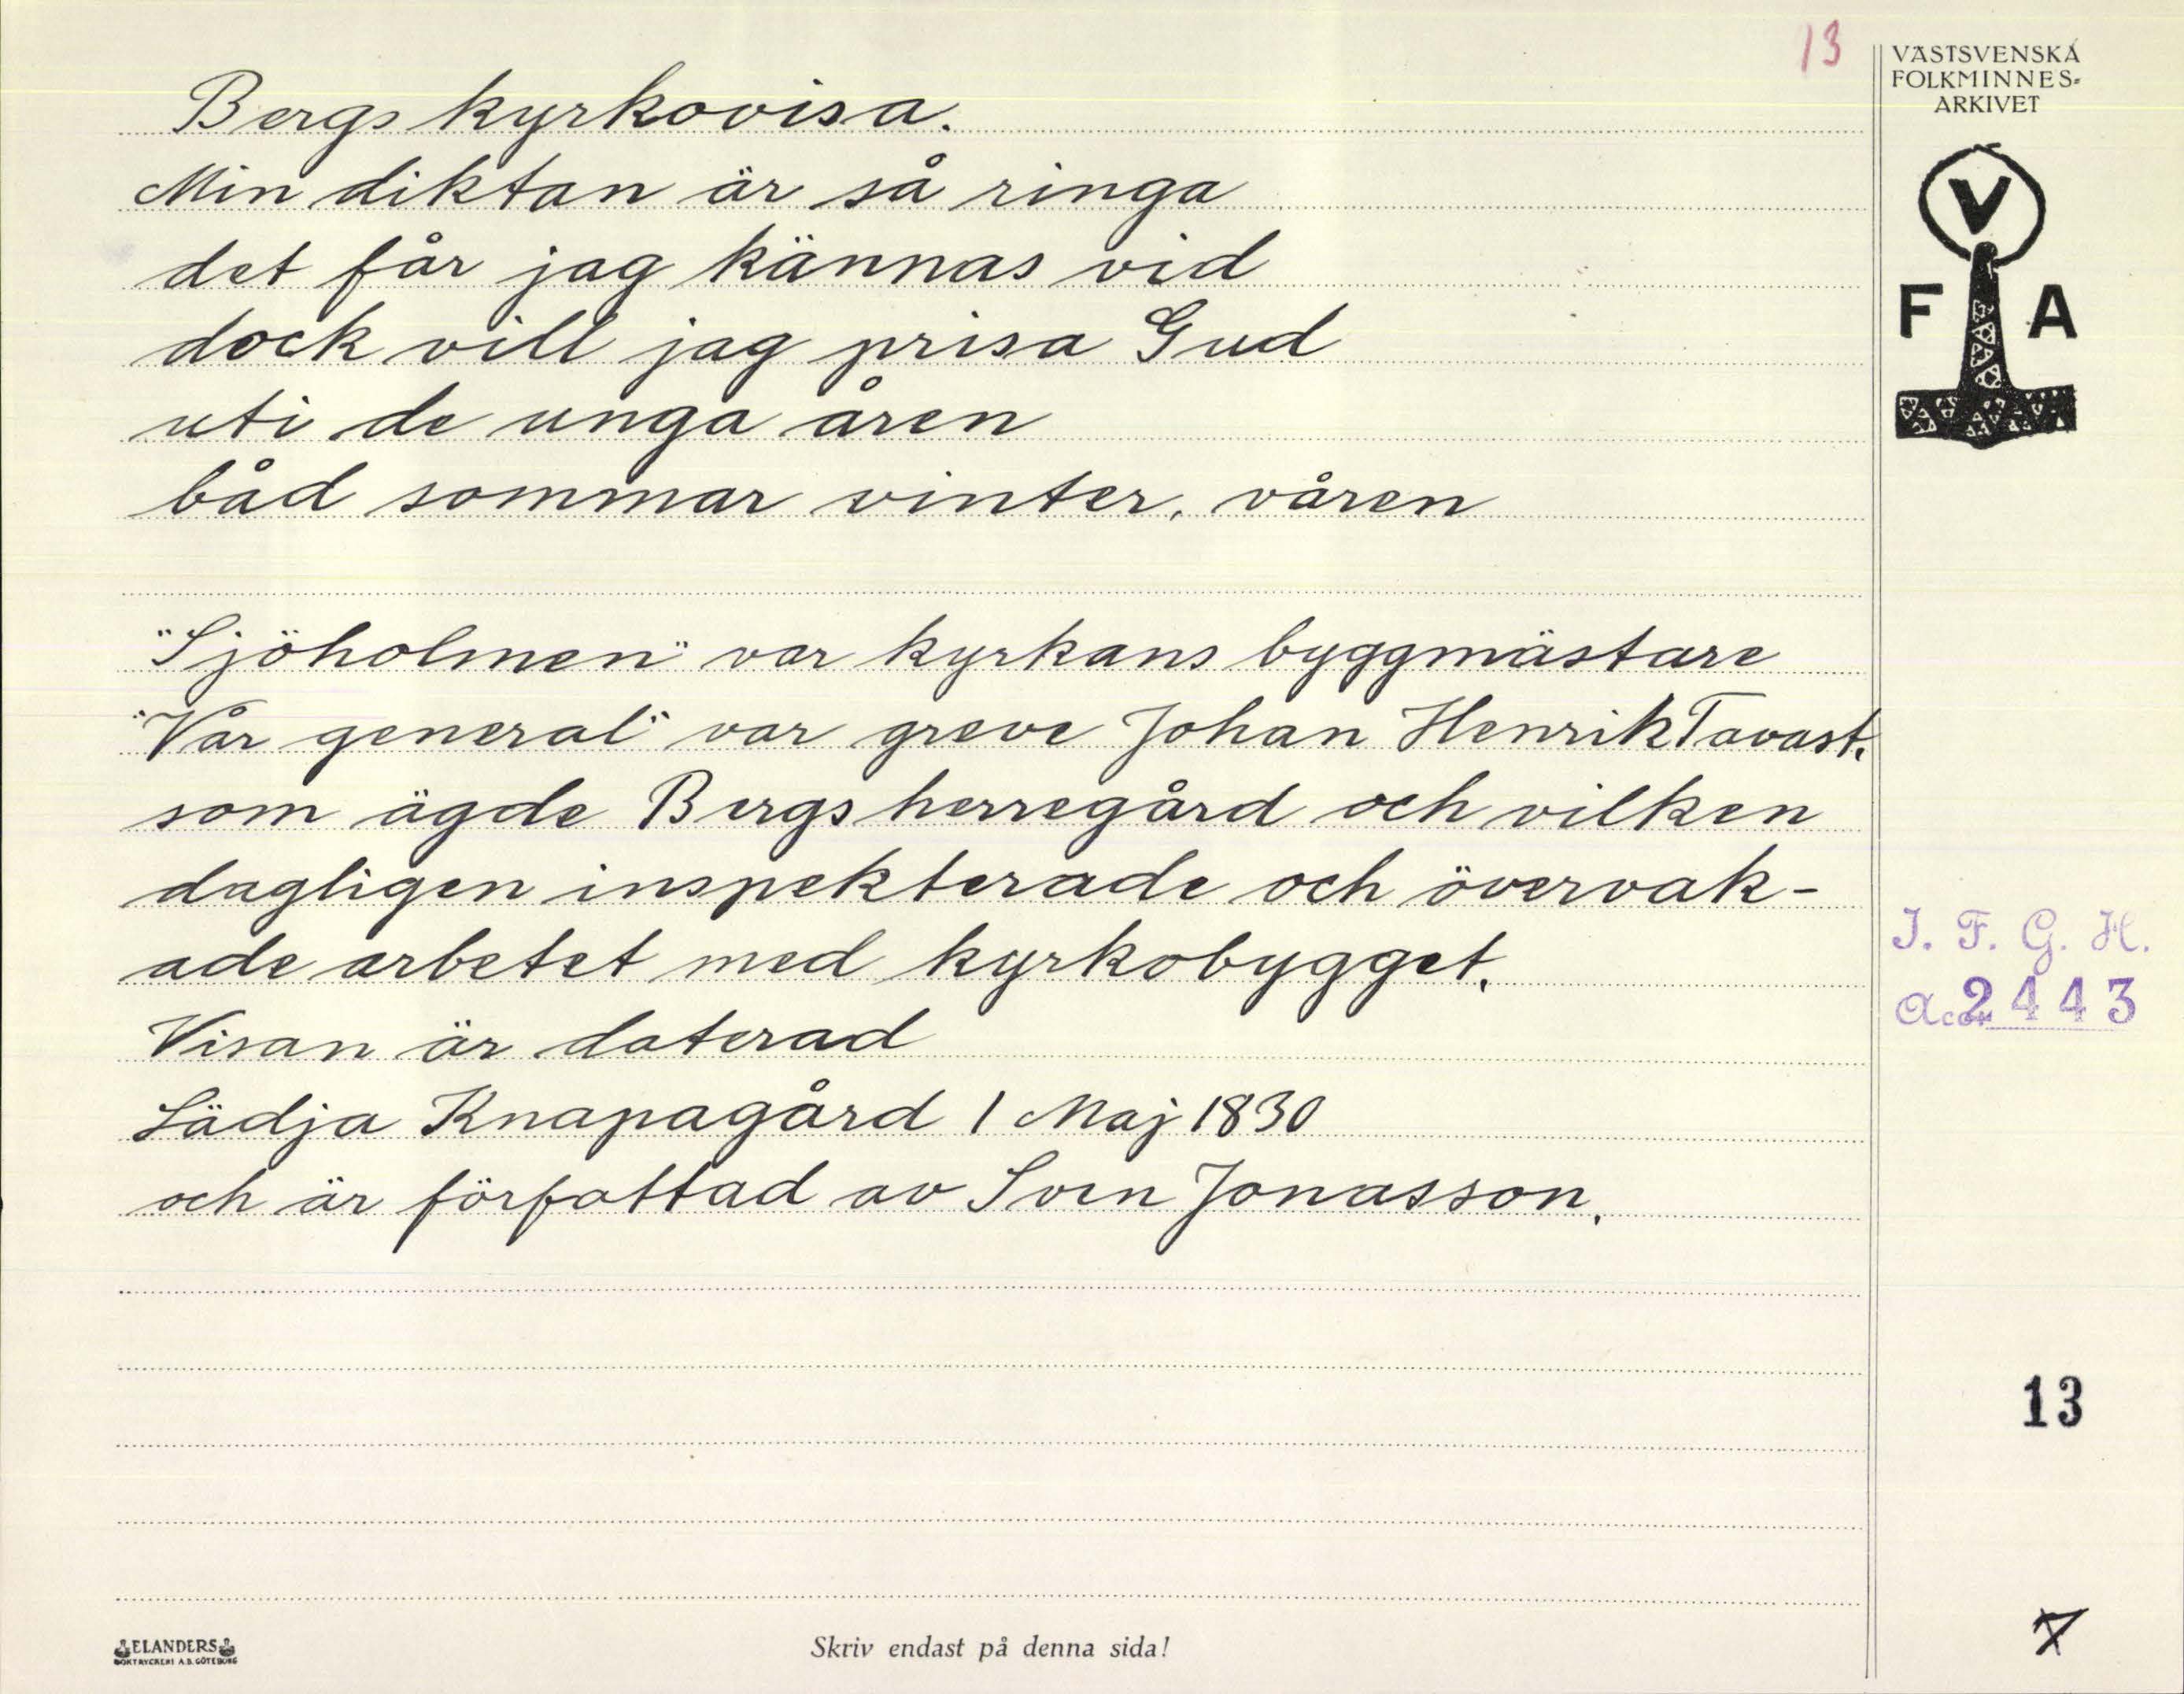 13
VÄSTSVENSKA
FOLKMINNES-
ARKIVET
V
F A
Bergs kyrkovisa.
Min diktan är så ringa
det får jag kännas vid
dock vill jag prisa Gud
uti de unga åren
båd sommar vinter, våren
"Sjöholmen" var kyrkans byggmästare
"Vår general" var greve Johan Henrik Tavast,
som ägde Bergs herregård och vilken
dagligen inspekterade och övervak-
ade arbetet med kyrkobygget.
Visan är daterad
Lädja Knapagård 1 Maj 1830
och är författad av Sven Jonasson.
I. F. G. H.
Acc. 2443
13
7
ELANDERS
BOKTRYCKERI A.B. GÖTEBORG
Skriv endast på denna sida!